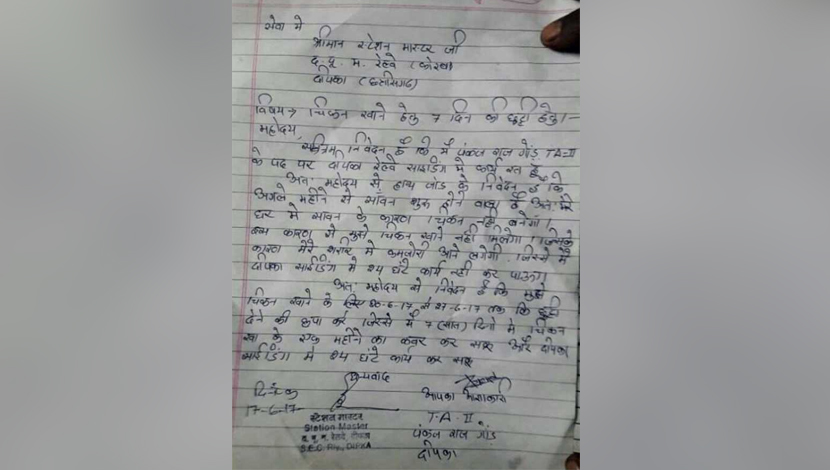 सेवा में
श्रीमान स्टेशन मास्टर जी
द. पू. म. रेल्वे (कोरबा)
दीपिका (छत्तीसगढ़)
विषय → चिकन खाने हेतु 7 दिन कि छुट्टी हेतु।-
महोदय,
सविनय निवेदन है कि मैं पंकज राज गोंड़ TA-II
के पद पर दीपिका रेल्वे साइडिंग में कार्य रत हूँ
अतः महोदय से हाथ जोड़ के निवेदन है कि
अगले महीने से सावन शुरू होने वाला है अतः मेरे
घर में सावन के कारण चिकन नही बनेगा।
इस कारण से मुझे चिकन खाने नही मिलेगा। जिसके
कारण मेरे शरीर में कमजोरी आने लगेगी. जिससे मैं
दीपिका साईडिंग में 24 घंटे कार्य नही कर पाऊंगा
अतः महोदय से निवेदन है कि मुझे
चिकन खाने के लिए 20-6-17 से 27-6-17 तक कि छुट्टी
देने की कृपा करें जिससे मैं 7 (सात) दिनों में चिकन
खा के एक महीने का कवर कर सकू और दीपिका
साईडिंग में 24 घंटे कार्य कर सकू
धन्यवाद
दिनांक
17-6-17
आपका आज्ञाकारी
T-A-II
पंकज राज गोंड
दीपिका
स्टेशन मास्टर
Station Master
द. पू. म. रेलवे, दीपका
S.E.C. Rly.